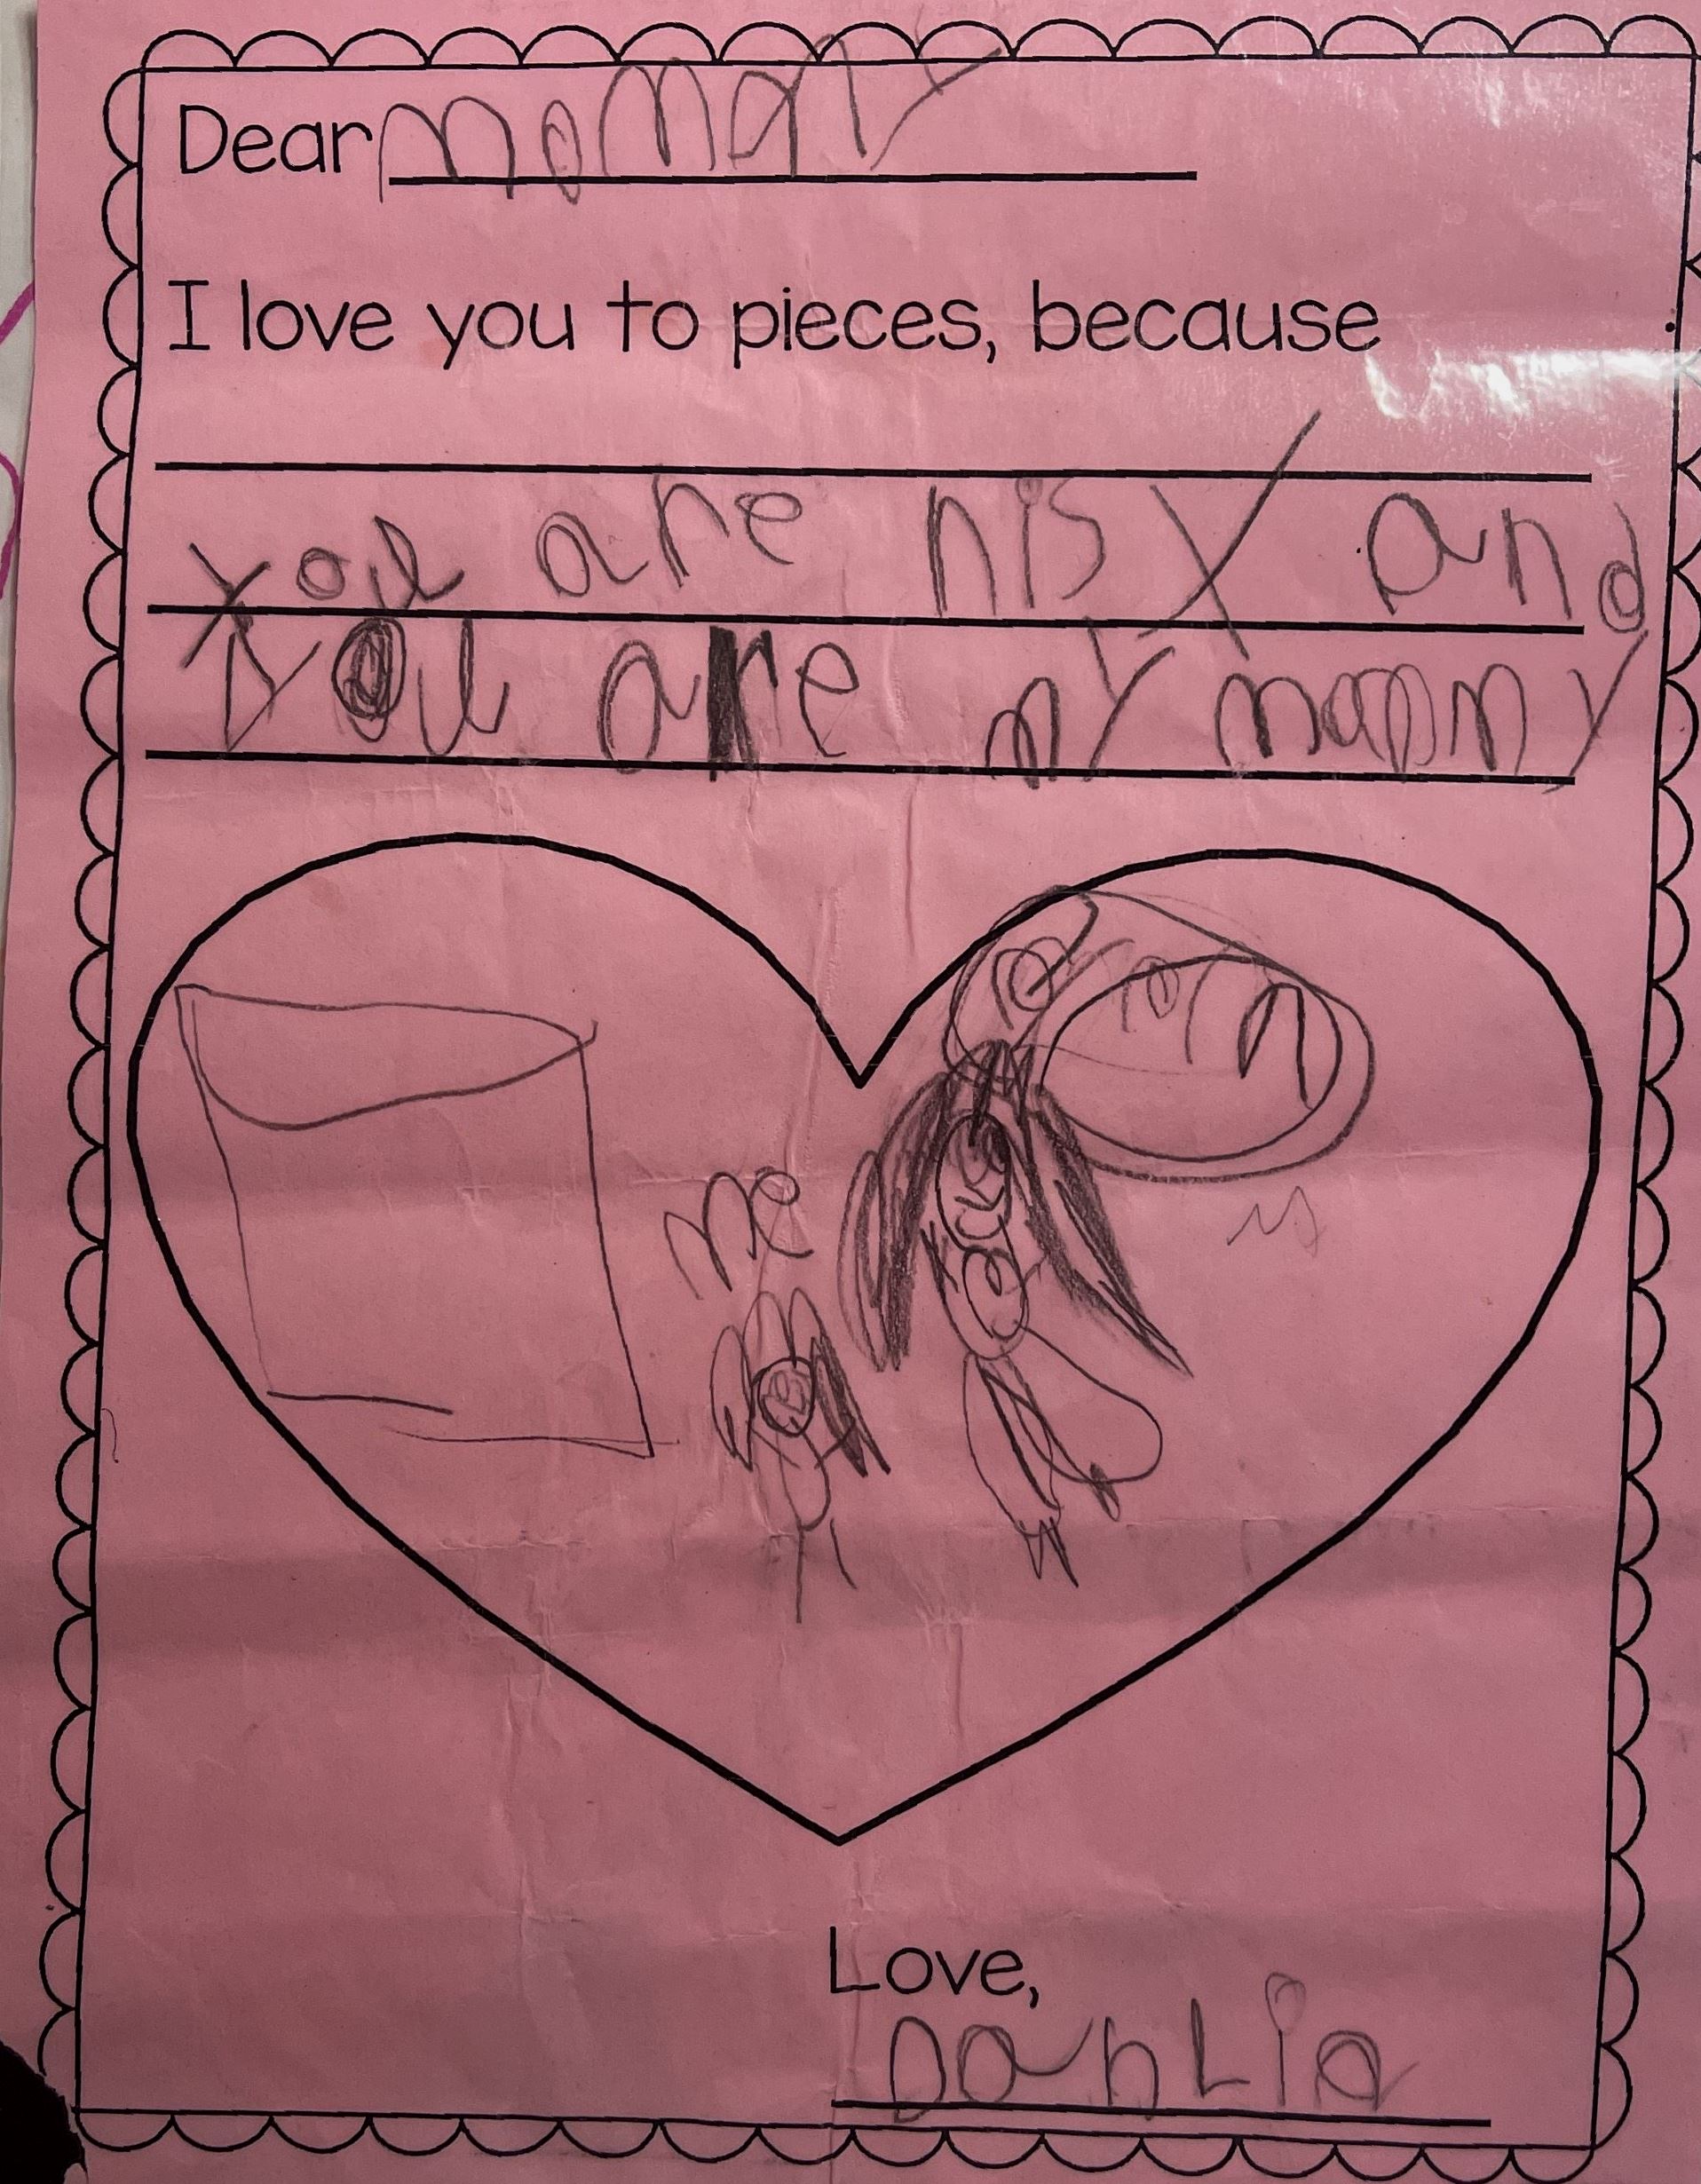 Dear momdy
I love you to pieces, because
you are nisy and
you are my mommy
me
Love,
DahLia